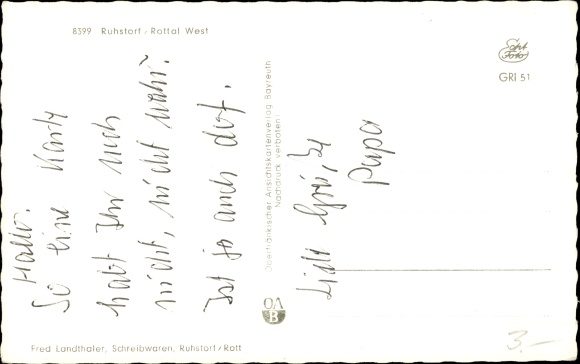 8399 Ruhstorf / Rottal West
Hallo.
So eine Karte
habt Ihr noch
nicht, nicht wahr?
Ist ja auch doof.
Oberfränkischer Ansichtskartenverlag Bayreuth
Nachdruck verboten!
Echt
Foto
GRI 51
Liebe Grüße
Papa
OA
B
Fred Landthaler, Schreibwaren, Ruhstorf/Rott
3.-